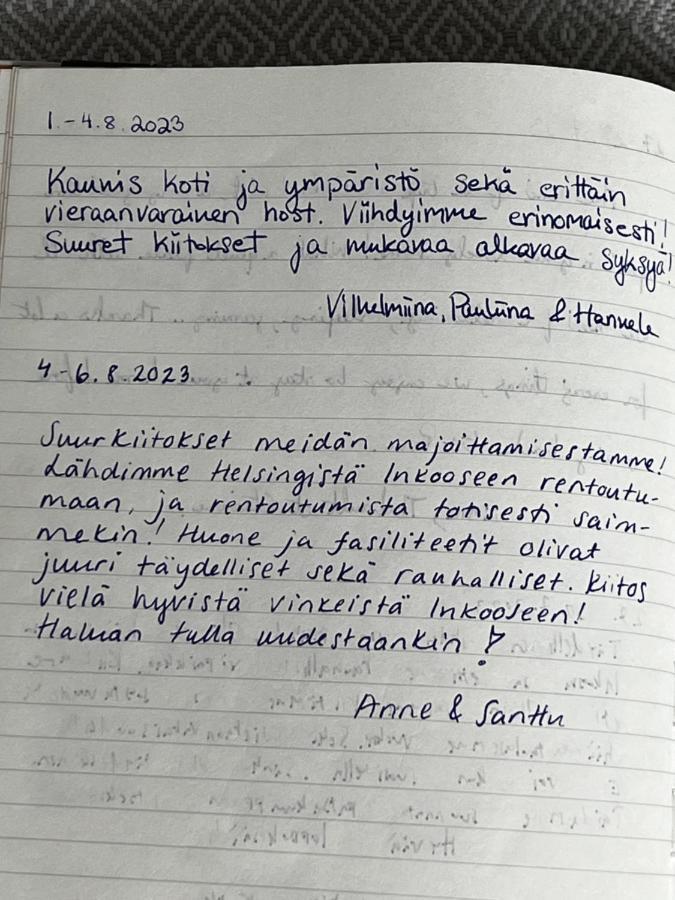 1.-4.8.2023
Kaunis koti ja ympäristö sekä erittäin
vieraanvarainen host. Viihdyimme erinomaisesti!
Suuret kiitokset ja mukavaa alkavaa syksyä!
Vilhelmiina, Pauliina & Hannele
4.-6.8.2023
Suurkiitokset meidän majoittamisestamme!
Lähdimme Helsingistä Inkooseen rentoutu-
maan, ja rentoutumista totisesti saim-
mekin! Huone ja fasiliteetit olivat
juuri täydelliset sekä rauhalliset. Kiitos
vielä hyvistä vinkeistä Inkooseen!
Haluan tulla uudestaankin!
Anne & Santtu